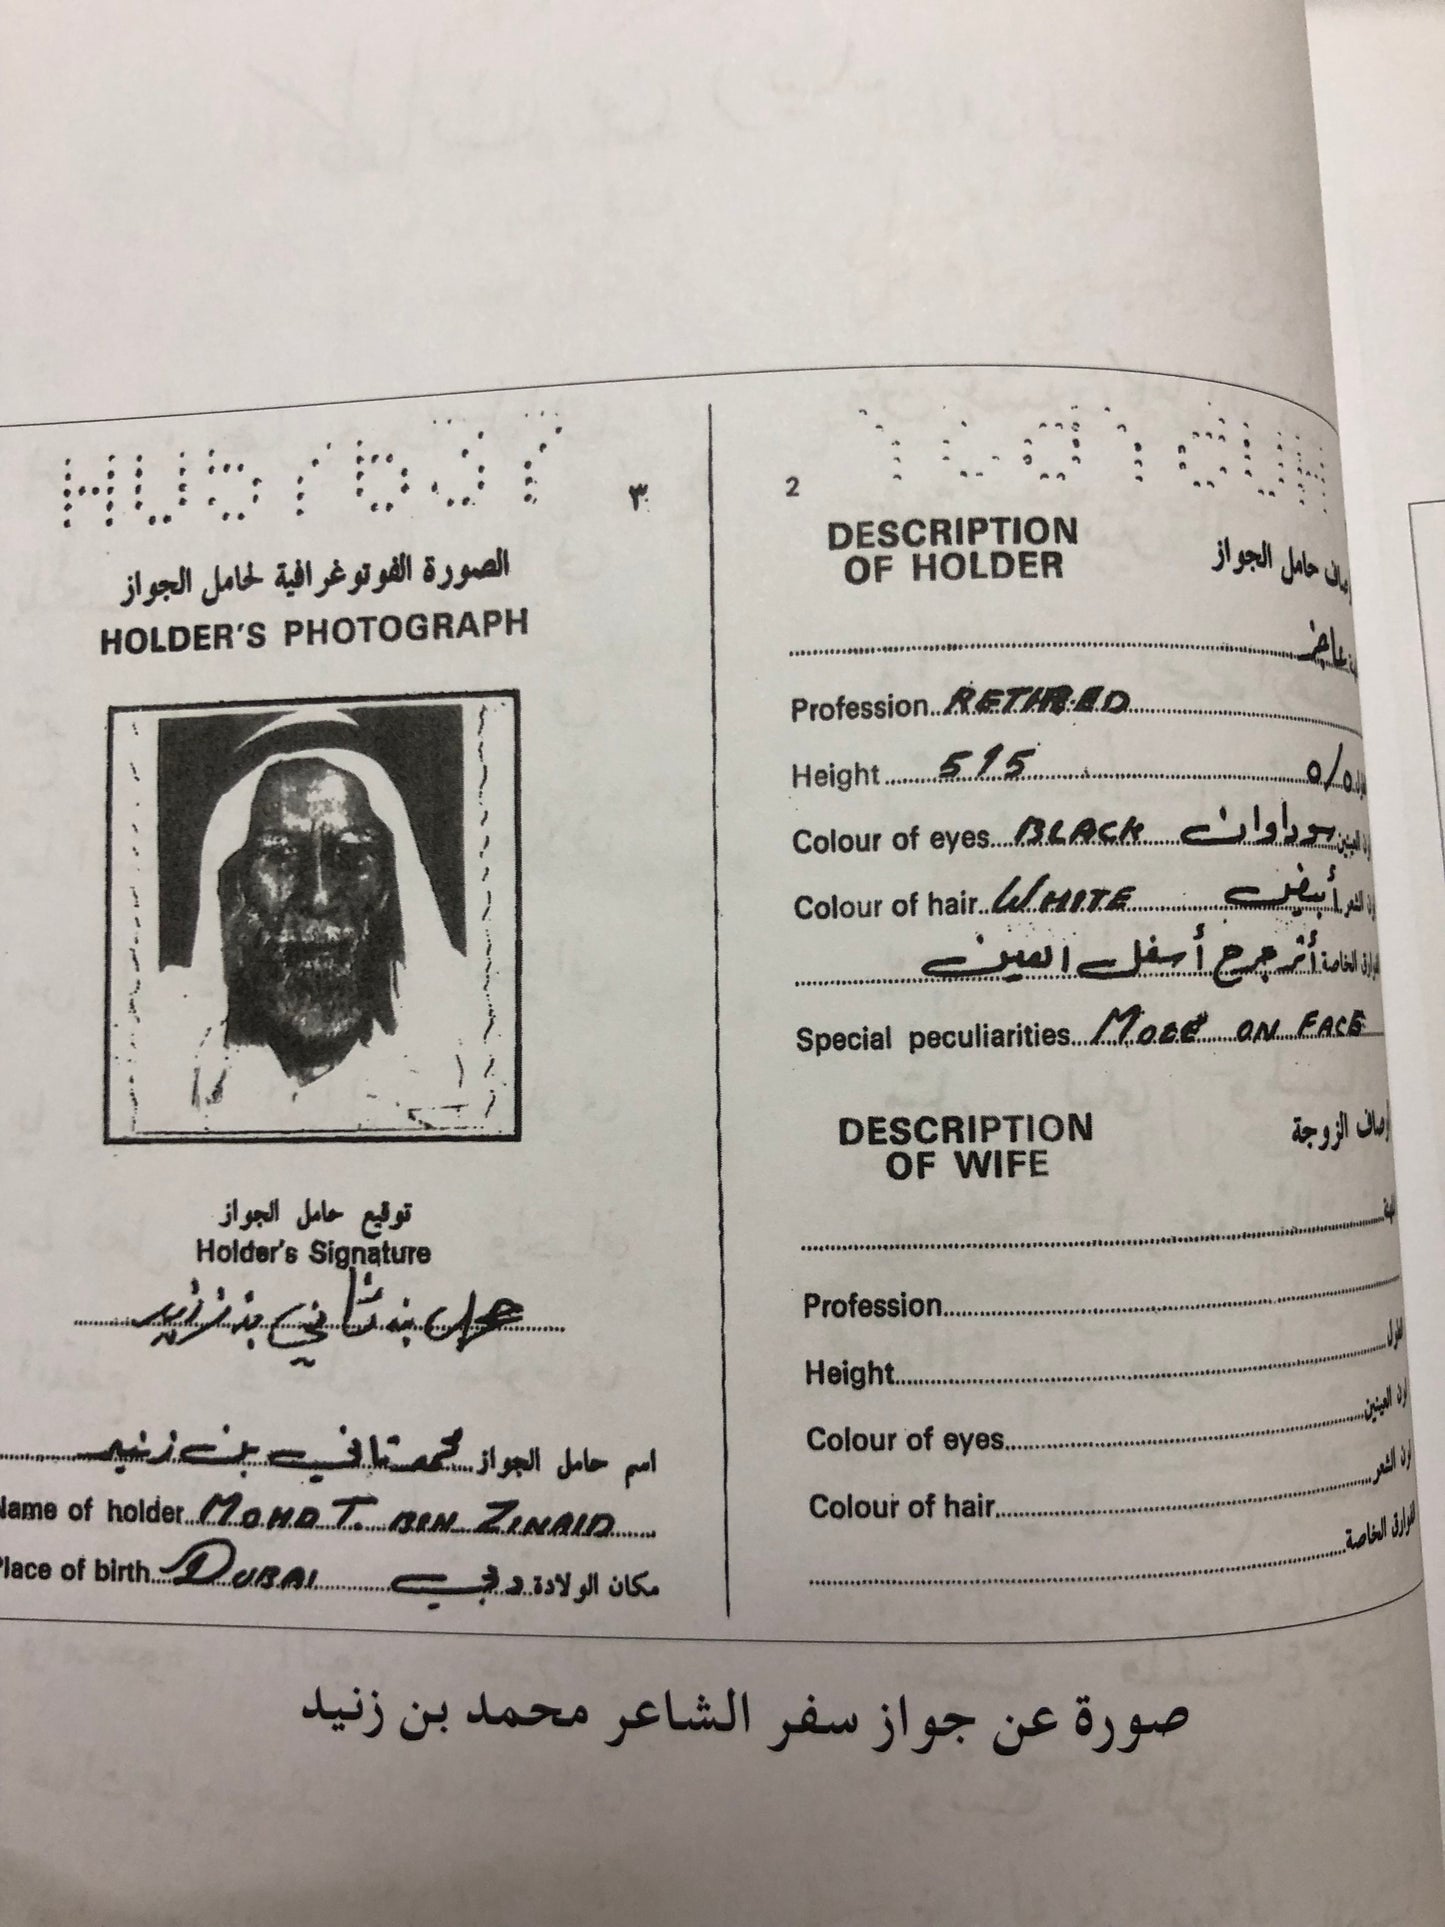 ٣
الصورة الفوتوغرافية لحامل الجواز
HOLDER'S PHOTOGRAPH
توقيع حامل الجواز
Holder's Signature
بن ثاني بن زنيد
اسم حامل الجواز محمد ثاني بن زنيد
Name of holder MOHD T. BEN ZINAID
Place of birth DUBAI دبي مكان الولادة
2
DESCRIPTION
OF HOLDER
أوصاف حامل الجواز
Profession RETIRED
Height 5'5 ٥/٥
Colour of eyes BLACK سوداوان لون العينين
Colour of hair WHITE أبيض لون الشعر
الخاصة أثر جرح أسفل العين
Special peculiarities MOLE ON FACE
DESCRIPTION
OF WIFE
أوصاف الزوجة
المهنة
Profession
الطول
Height
لون العينين
Colour of eyes
لون الشعر
Colour of hair
الفوارق الخاصة
صورة عن جواز سفر الشاعر محمد بن زنيد